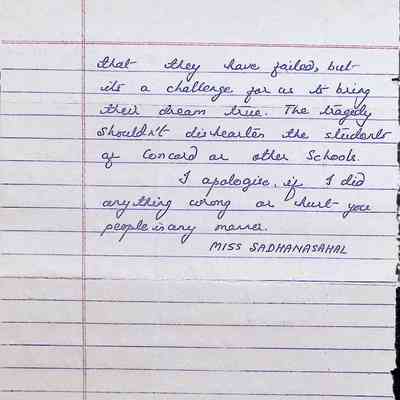 that they have failed, but
its a challenge for us to bring
their dream true. The tragedy
shouldn't dishearten the students
of Concord or other Schools.
I apologise, if I did
anything wrong or hurt you
people in any manner.
MISS SADHANASAHAL